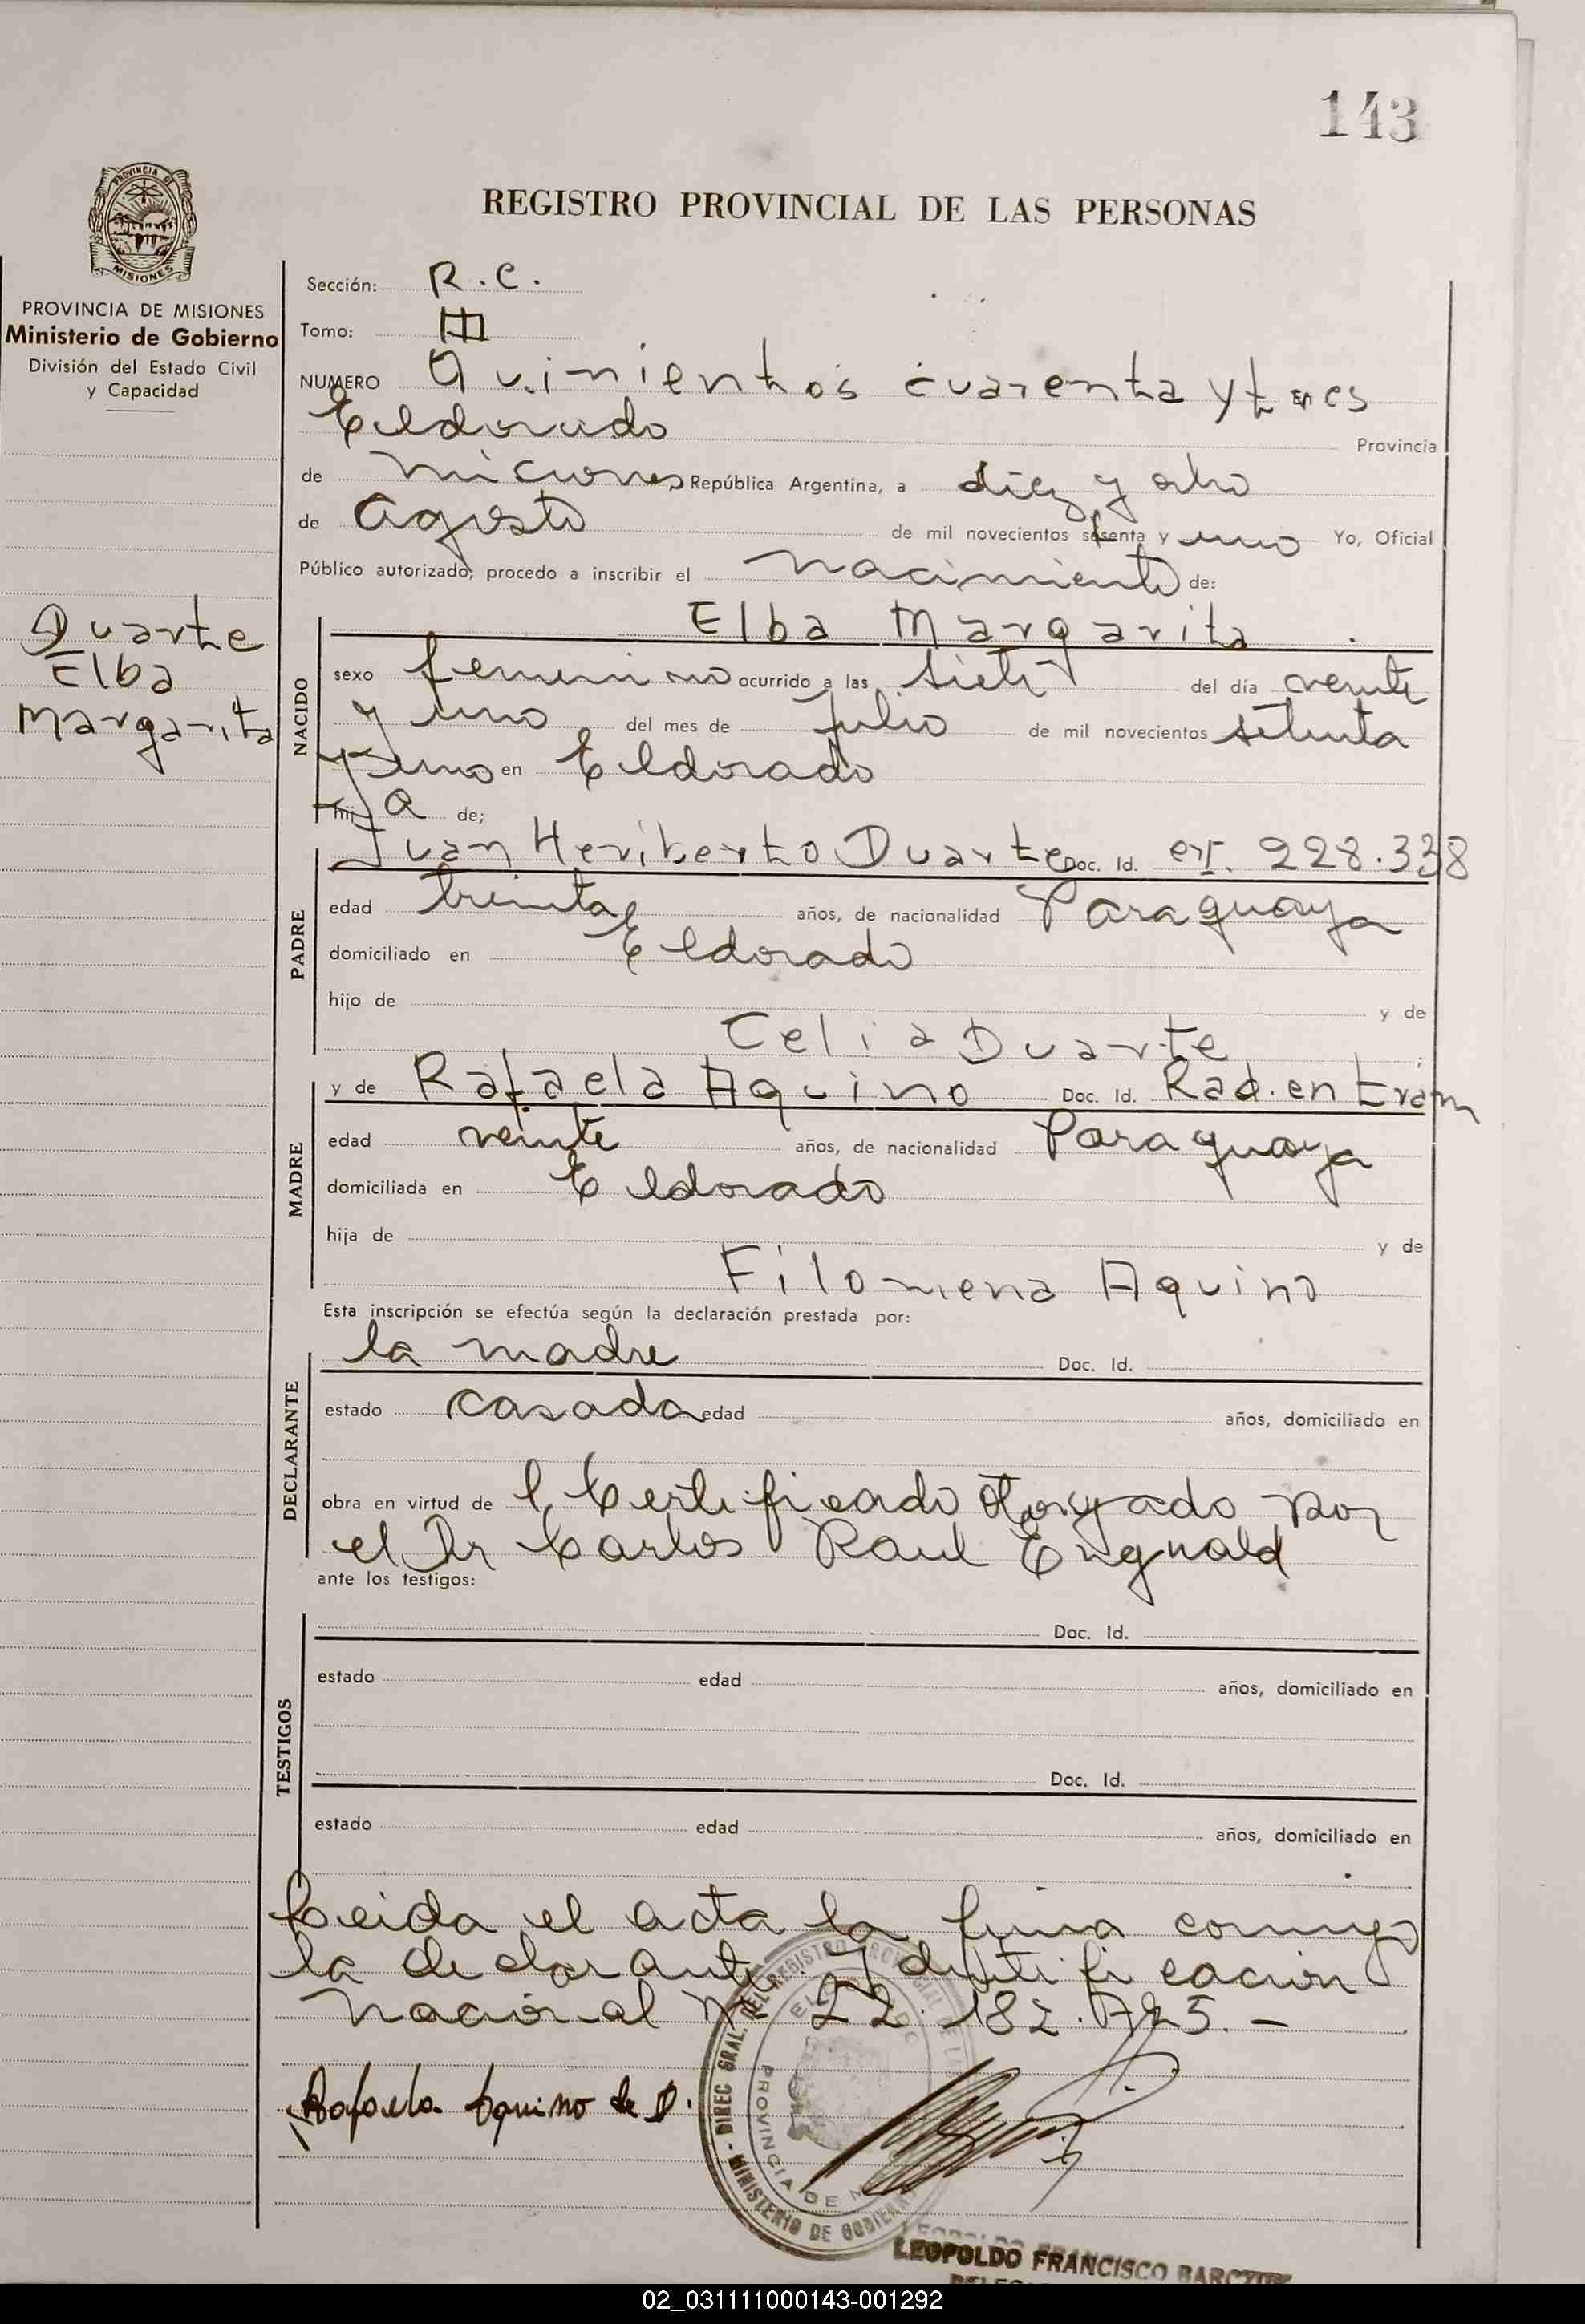 143
PROVINCIA DE MISIONES
PROVINCIA DE MISIONES
Ministerio de Gobierno
División del Estado Civil
y Capacidad
Duarte
Elba
Margarita
REGISTRO PROVINCIAL DE LAS PERSONAS
Sección: R.C.
Tomo: III
NUMERO Quinientos cuarenta y tres
Eldorado Provincia
de Miciones República Argentina, a diez y ocho
de Agosto de mil novecientos setenta y uno Yo, Oficial
Público autorizado, procedo a inscribir el nacimiento de:
NACIDO
Elba Margarita
sexo femenino ocurrido a las siete del día veinte
y uno del mes de julio de mil novecientos setenta
y uno en Eldorado
hija de;
PADRE
Juan Heriberto Duarte Doc. Id. 228.338
edad treinta años, de nacionalidad Paraguaya
domiciliado en Eldorado
hijo de y de
Celia Duarte;
MADRE
y de Rafaela Aquino Doc. Id. Rad. en tram
edad veinte años, de nacionalidad Paraguaya
domiciliada en Eldorado
hija de y de
Filomena Aquino
Esta inscripción se efectúa según la declaración prestada por:
DECLARANTE
la madre Doc. Id.
estado casada edad años, domiciliado en
obra en virtud de Certificado otorgado por
el Dr Carlos Raul Engwald
ante los testigos:
TESTIGOS
Doc. Id.
estado edad años, domiciliado en
Doc. Id.
estado edad años, domiciliado en
Leida el acta la firma conmigo
la declarante. Identificación
nacional Nº 22.182.725.-
Rafaela Aquino de D.
DIREC GRAL. DEL REGISTRO PROVINCIAL DE LAS
MINISTERIO DE GOBIERNO
PROVINCIA DE
LEOPOLDO FRANCISCO
02_031111000143-001292